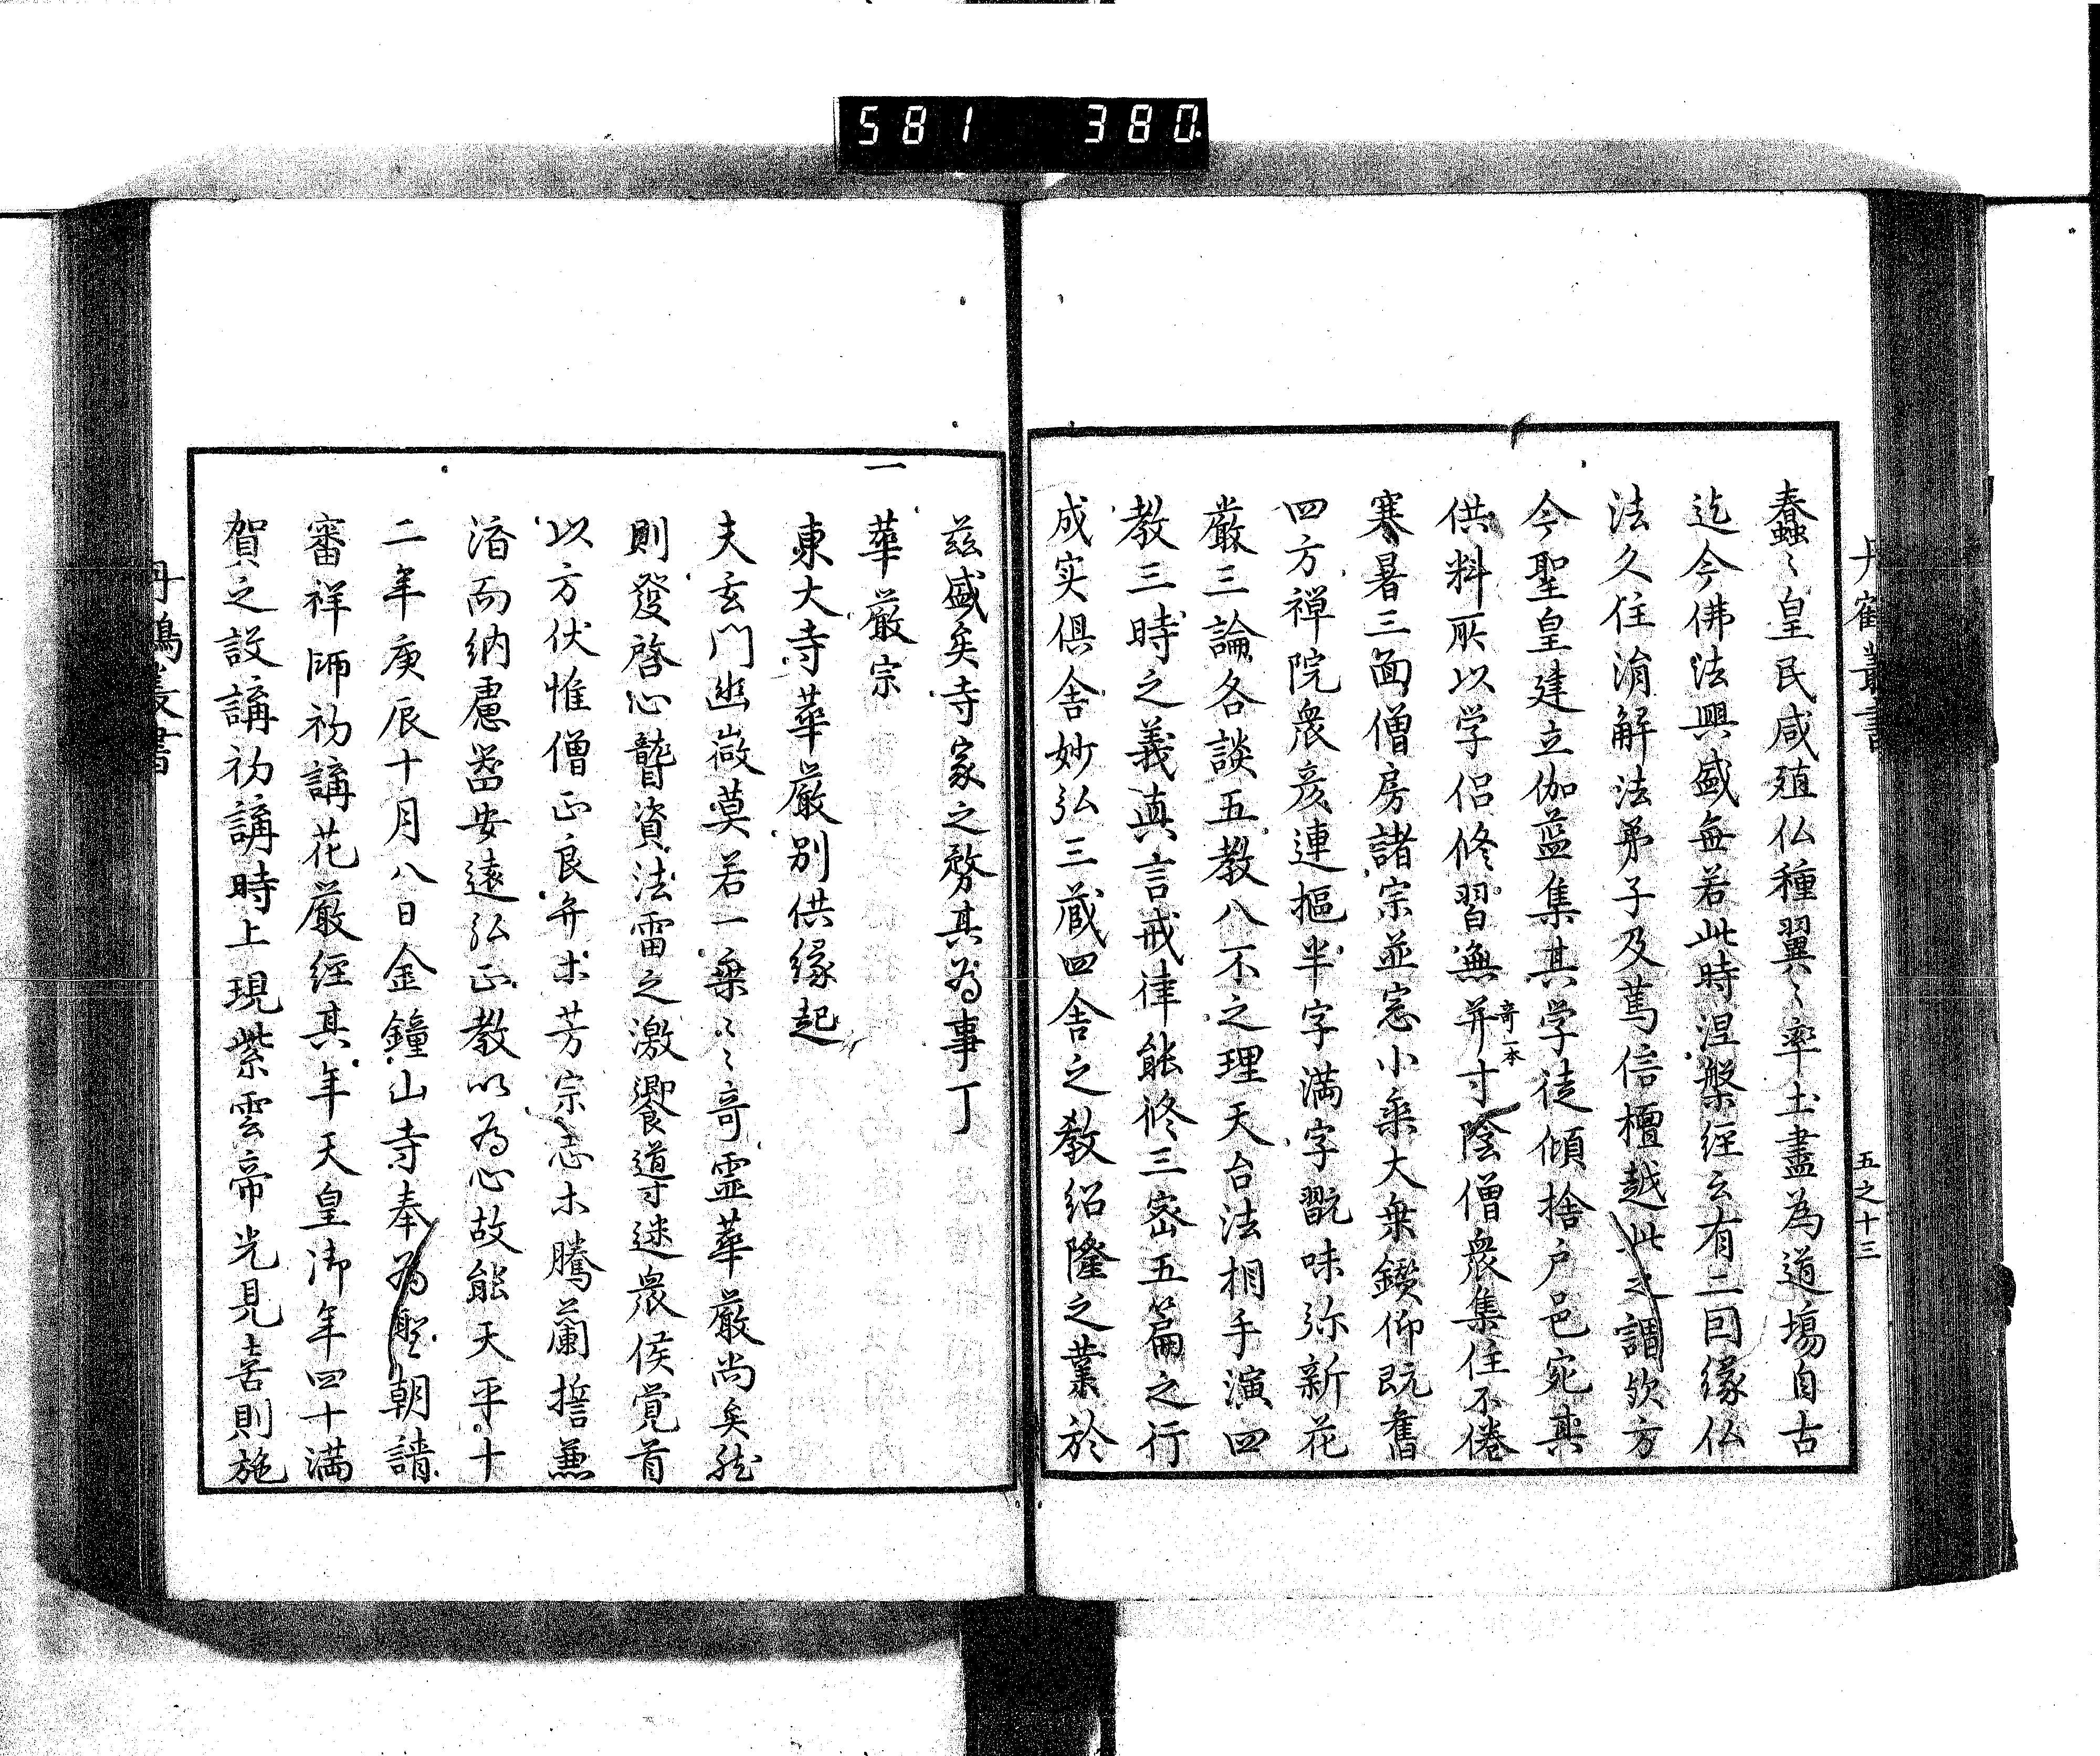 581 380
丹鶴叢書 五之十三
蠢蠢〻皇民咸殖仏種翼〻率土盡為道塲自古
迄今佛法興盛無若此時涅槃経云有二囙縁仏
法久住淯解法弟子及篤信檀越此之謂欤方
今聖皇建立伽藍集其学徒傾捨戸邑宛其
供料所以学侶修習無并寸陰僧衆集住不倦
寄一本
寒暑三面僧房諸宗並窓小乗大乗鑚仰既舊
四方禅院衆彦連摳半字満字翫味弥新花
厳三論各談五教八不之理天台法相手演四
教三時之義真言戒律能修三密五篇之行
成实俱舎妙弘三蔵四含之教紹隆之業於
茲盛矣寺家之勞其為事丁
一華厳宗
東大寺華厳別供縁起
夫玄門幽㣲莫若一乗〻〻奇霊華厳尚矣然
則發啓心聾資法雷之激饗導迷衆俟覚首
以方伏惟僧正良弁木芳宗志木騰蘭捨兼
済而納慮啚安遠弘正教以為心故能天平十
二年庚辰十月八日金鐘山寺奉為聖朝請
審祥師初講花厳経其年天皇御年四十満
賀之設講初講時上現紫雲帝光見喜則施
丹鶴叢書